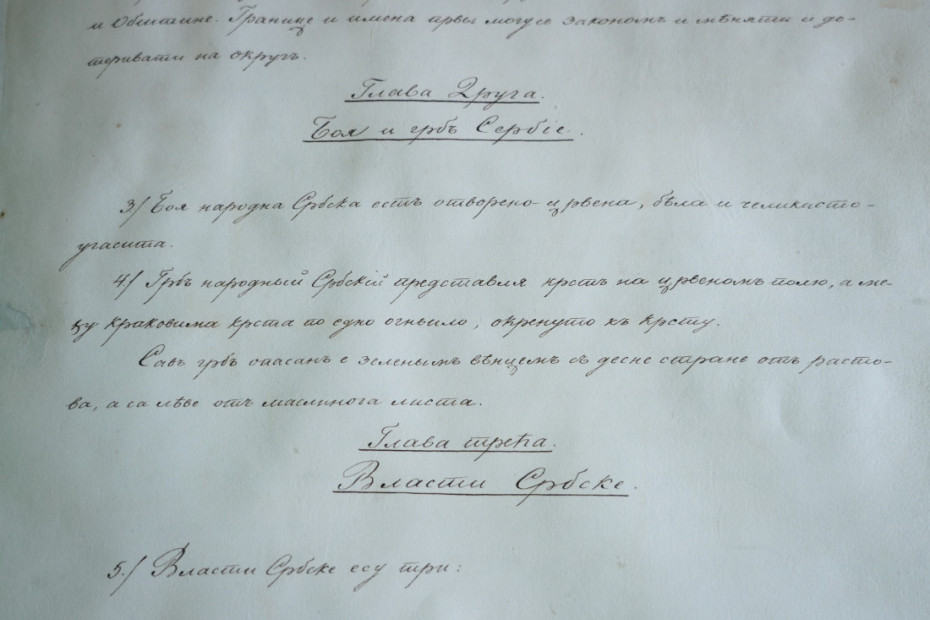 и Обштине. Границе и имена првы могу се закономъ и мѣняти и до-
теривати на округъ.
Глава Друга.
Боя и грбъ Сербіе.
3/ Боя народна Србска есть отворено-црвена, бѣла и челикасто-
угасита.
4/ Грбъ народный Србскій представля крстъ на црвеномъ полю, а ме-
ѣу краковима крста по едно огньило, окренуто къ крсту.
Савъ грбъ опасанъ є зеленымъ вѣнцемъ съ десне стране отъ расто-
ва, а са лѣве отъ маслинога листа.
Глава трећа.
Власти Србске.
5./ Власти Србске есу три: